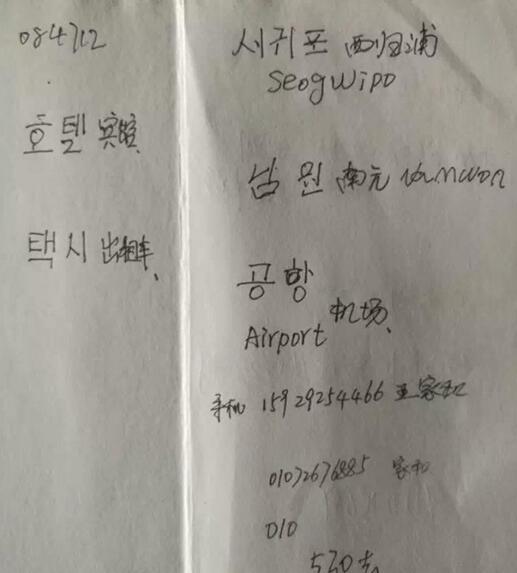 084712
호텔 宾馆
택시 出租车
서귀포 西归浦
Seogwipo
남원 南元 Namwon
공항
Airport 机场
手机 15929254466 王家和
01072676885 家和
010